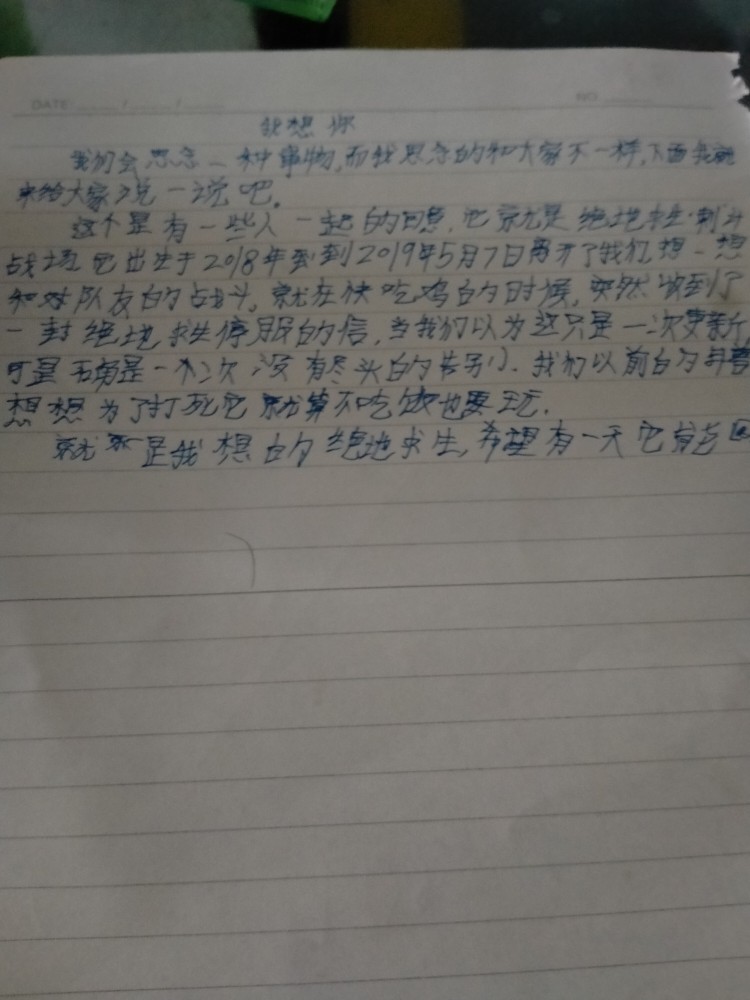 DATE / /
NO
我想你
我们会思念一种事物,而我思念的和大家不一样,下面我就
来给大家说一说吧。
这个是有一些人一起的回忆,它就是绝地求生:刺斗
战场它出生于2018年到到2019年5月7日离开了我们想一想
和对队友的战斗,就在快吃鸡的时候,突然收到了
一封绝地求生停服的信,当我们以为这只是一次更新,
可是确是一次没有尽头的告别。我们以前的
想想为了打死它就算不吃饭也要玩.
就是我想的绝地求生,希望有一天它能回